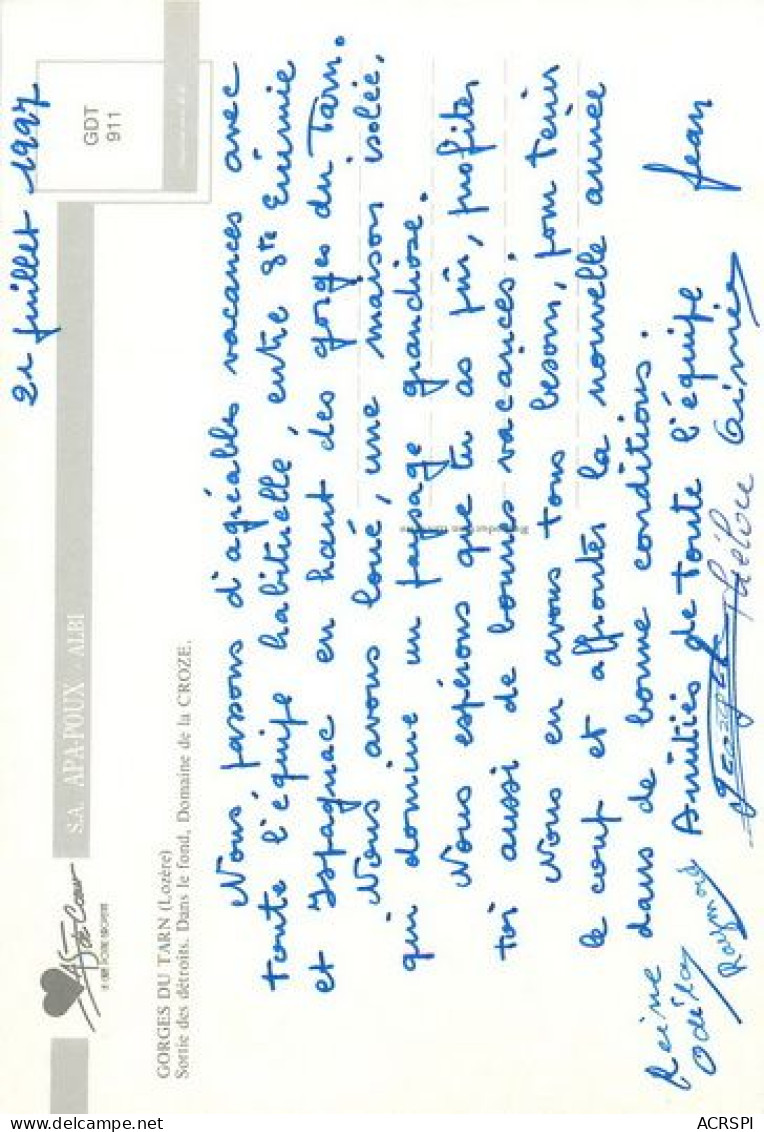 21 juillet 1997
GDT
911
S.A. APA-POUX - ALBI
As de Cœur
GORGES DU TARN (Lozère)
Sortie des détroits. Dans le fond, Domaine de la CROZE.
Nous passons d'agréables vacances avec
toute l'équipe habituelle, entre Ste Enimie
et Ispagnac en haut des gorges du Tarn.
Nous avons loué, une maison isolée,
qui domine un paysage grandiose.
Nous espérons que tu as pu, profiter
toi aussi de bonnes vacances.
Nous en avons tous besoin, pour tenir
le coup et affronter la nouvelle année
dans de bonne conditions.
Amitiés de toute l'équipe
Jean
Reine
Odile
Raymond
Georges
Hélène
Aimée
ACRSPI